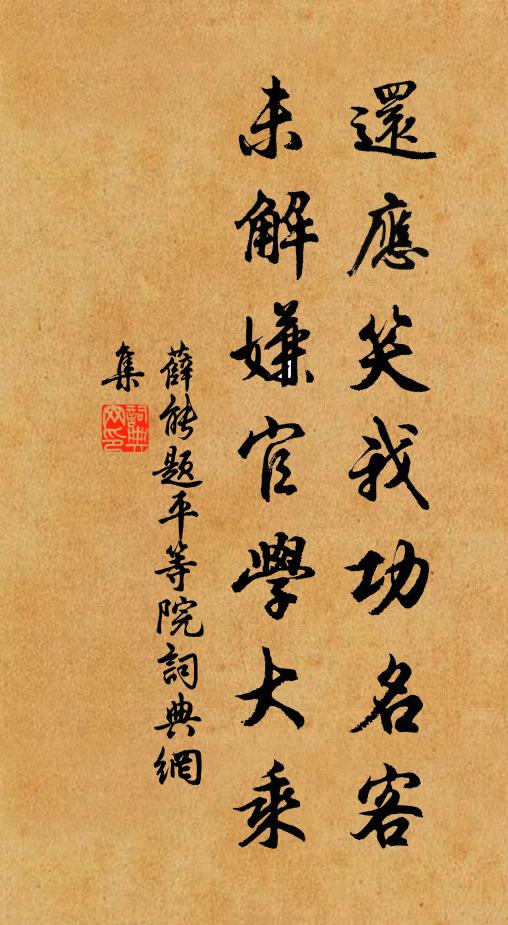 還應笑我功名客
未解嫌官學大乘
薛能題平等院詞典網
集
詞典
网印